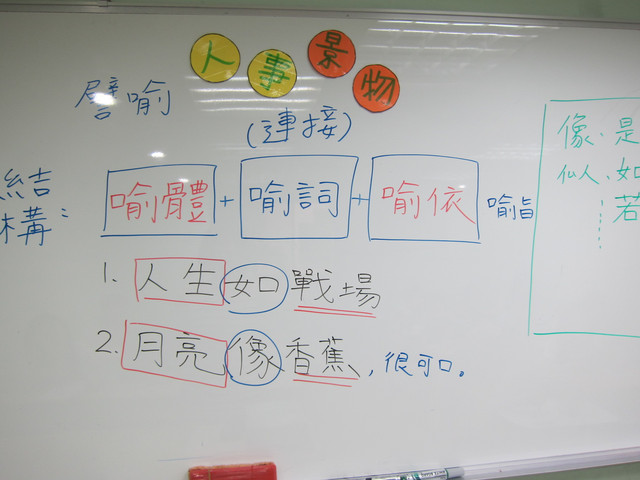 人事景物
譬喻
(連接)
結構:
喻體+喻詞+喻依 喻旨
1. 人生如戰場
2. 月亮像香蕉,很可口。
像、是
似、如
若